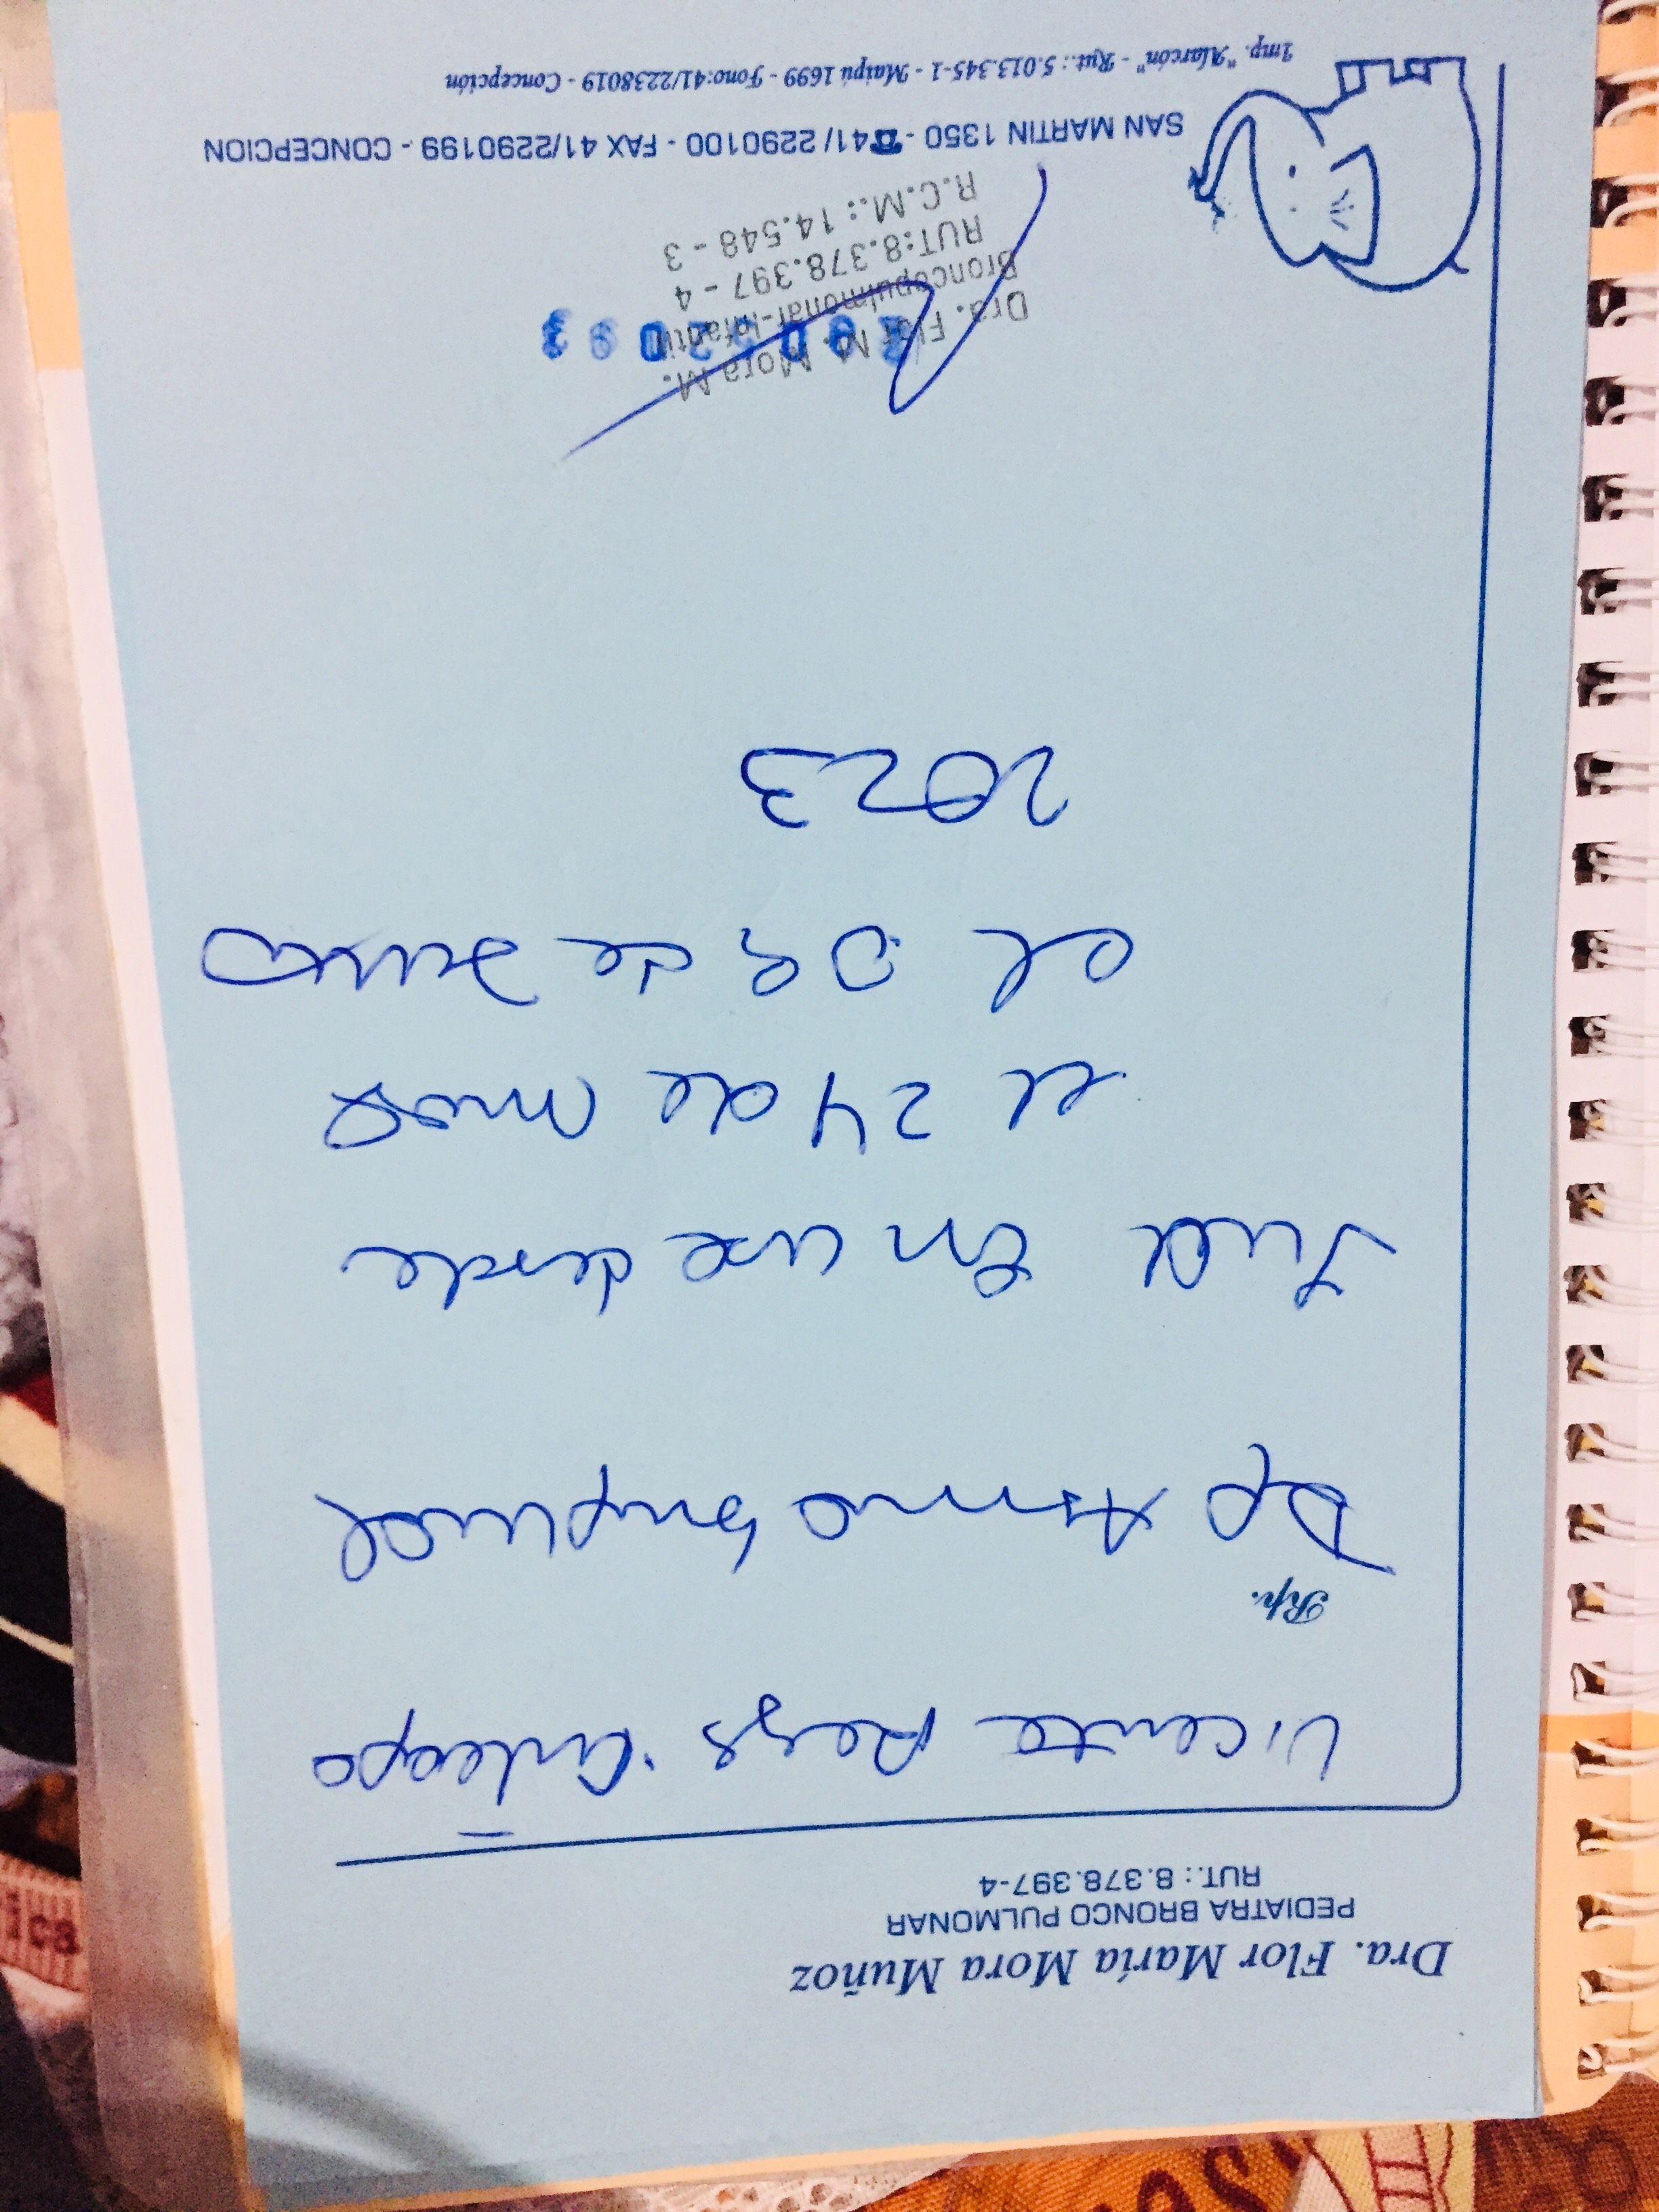 Dra. Flor María Mora Muñoz
PEDIATRA BRONCO PULMONAR
RUT.: 8.378.397-4
Vicente Reyes
Rp.
Dg Asma
en desde
el 24 de
el 02 de Junio
2023
Dra. Flor M. Mora M.
Broncopulmonar-Infantil
RUT:8.378.397 - 4
R.C.M.: 14.548 - 3
SAN MARTIN 1350 - ☎41/ 2290100 - FAX 41/2290199 - CONCEPCION
Imp. "Alarcón" - Rut.: 5.013.345-1 - Maipú 1699 - Fono:41/2238019 - Concepción
ica